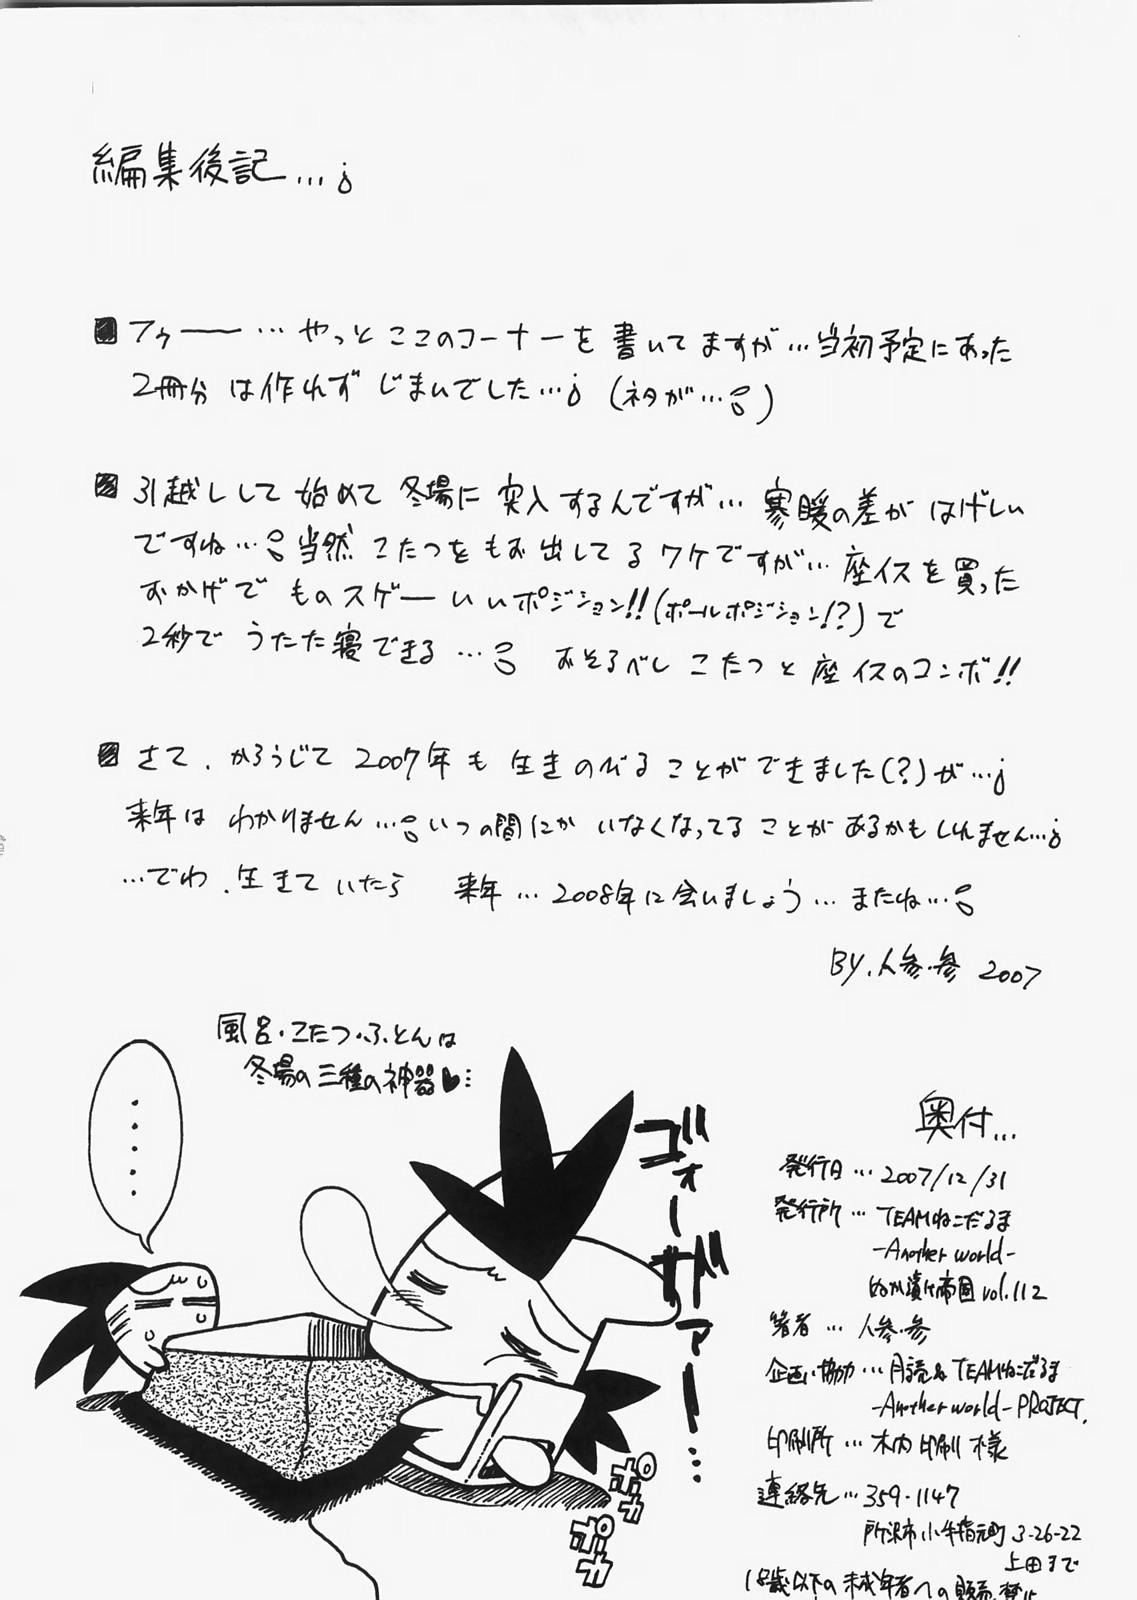 編集後記…
フゥ――…やっとここのコーナーを書いてますが…当初予定にあった
2冊分は作れずじまいでした…(ネタが…)
引越しして始めて冬場に突入するんですが…寒暖の差がはげしい
ですね…当然こたつをもお出ししてるワケですが…座イスを買った
おかげでものスゲーいいポジション!!(ポールポジション!?)で
2秒でうたた寝できる…おそるべしこたつと座イスのコンボ!!
さて、かろうじて2007年も生きのびることができました(?)が…
来年はわかりません…いつの間にかいなくなってることがあるかもしれません…
…でわ、生きていたら 来年…2008年に会いましょう…またね…
BY.人参・参 2007
風呂・こたつ・ふとんは
冬場の三種の神器♥…
……
ゴォーー
ザァーー…
ポカ
ポカ
奥付…
発行日…2007/12/31
発行所…TEAMねこだるま
-Another world-
ぬか漬け帝国 vol.112
著者…人参・参
企画・協力…月読&TEAMねこだるま
-Another world-PROJECT.
印刷所…木内印刷様
連絡先…359-1147
所沢市小手指元町3-26-22
上田まで
18歳以下の未成年者への販売禁止